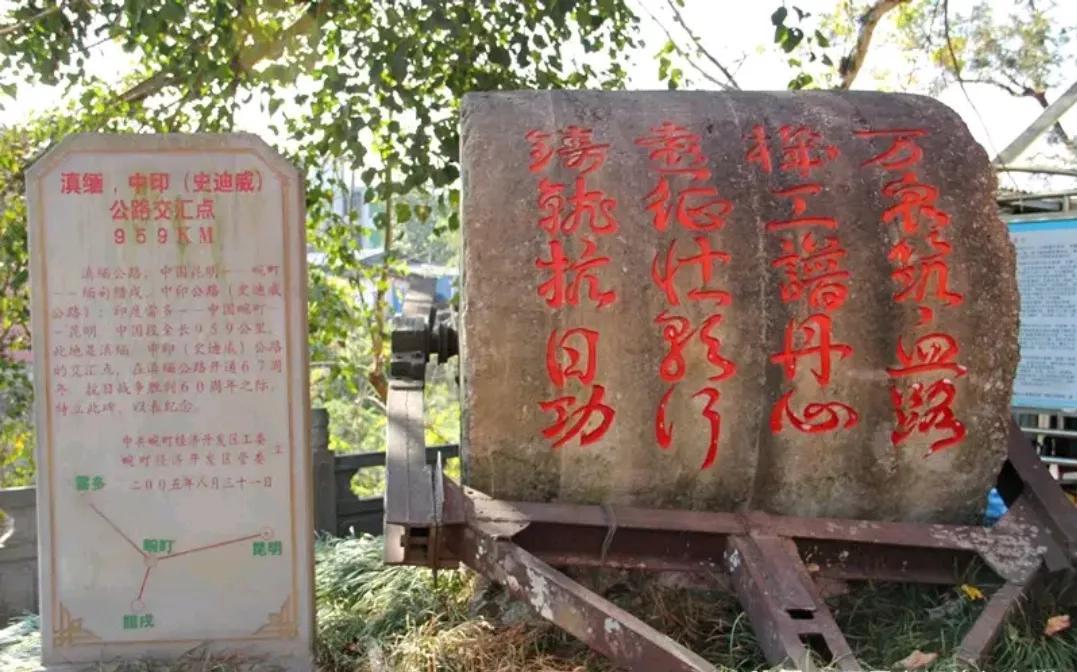 滇缅，中印（史迪威）
公路交汇点
959KM
滇缅公路：中国昆明——畹町
——缅甸腊戌，中印公路（史迪威
公路）：印度雷多——中国畹町—
—昆明，中国段全长959公里。
此地是滇缅、中印（史迪威）公路
的交汇点，在滇缅公路开通67周
年、抗日战争胜利60周年之际，
特立此碑，以表纪念。
中共畹町经济开发区工委
畹町经济开发区管委 立
二00五年八月三十一日
雷多
畹町
昆明
腊戌
万眾筑血路
機工譜丹心
遠征壮歌行
鑄就抗日功